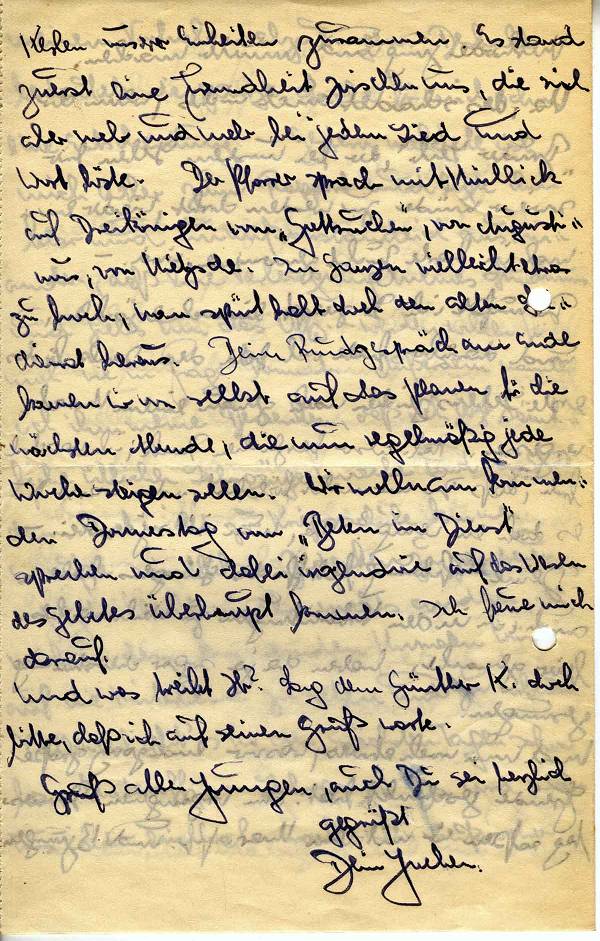 Kerlen unserer Einheiten zusammen. Es stand
zuerst eine Fremdheit zwischen uns, die sich
aber mehr und mehr bei jedem Lied und
Wort löste. Der Pfarrer sprach mit Hinblick
auf Dreikönigen vom „Gottsuchen“, von Augusti-
nus, von Nietzsche. Im Ganzen vielleicht etwas
zu hoch, man spürt halt doch den alten
dienst heraus. Beim Rundgespräch am Ende
kamen wir von selbst auf das planen für die
nächsten Abende, die nun regelmäßig jede
Woche steigen sollen. Wir wollen am kommen-
den Donnerstag vom „Beten im Dienst“
sprechen und dabei irgendwie auf das Wesen
des gebetes überhaupt kommen. Ich freue mich
darauf.
Und was treibt Ihr? Sag dem Günther K. doch
bitte, daß ich auf seinen Gruß warte.
Grüß allen Jungen, auch Du sei herzlich
gegrüßt
Dein Jochen.